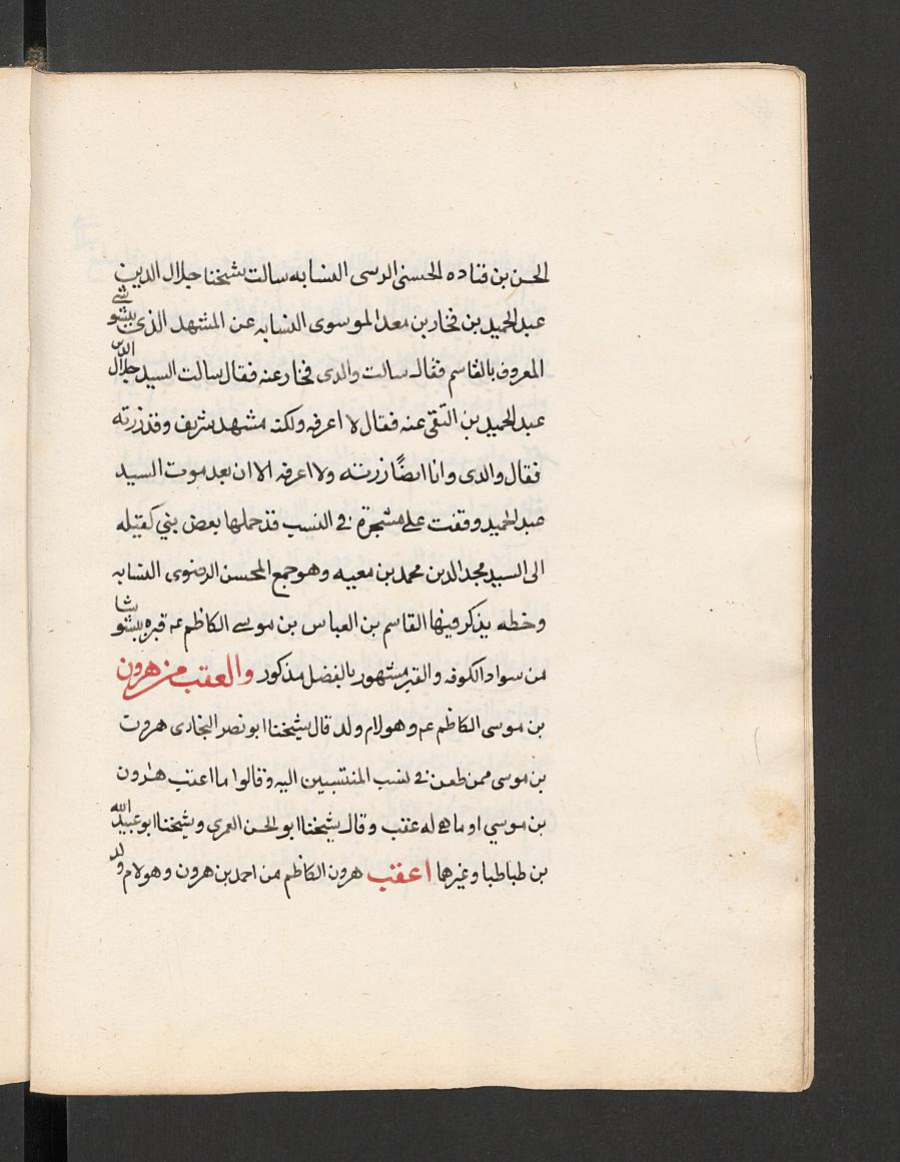 الحسن بن قتاده الحسنى الرسى النسابه سالت شيخنا جلال الدين
عبد الحميد بن فخار بن معد الموسوى النسابه عن المشهد الذى بشوشى
المعروف بالقاسم فقال سالت والدى فخار عنه فقال سالت السيد جلال الدين
عبد الحميد بن التقى عنه فقال لا اعرفه ولكنه مشهد شريف وقد زرته
فقال والدى وانا ايضًا زرته ولا اعرفه الا ان بعد موت السيد
عبد الحميد وقفت على مشجرة في النسب قد حملها بعض بني كفيله
الى السيد مجد الدين محمد بن معيه وهو جمع المحسن الرضوى النسابه
وخطه يذكر فيها القاسم بن العباس بن موسى الكاظم عم قبره بشوشا
من سواد الكوفه والقبر مشهور بالفضل مذكور والعقب من هرون
بن موسى الكاظم عم وهو لام ولد قال شيخنا ابو نصر البخارى هرون
بن موسى ممن طعن في نسب المنتسبين اليه وقالوا ما اعقب هرون
بن موسي او ما بقى له عقب وقال شيخنا ابو الحسن العمري وشيخنا ابو عبد الله
بن طباطبا وغيرهما اعقب هرون الكاظم من احمد بن هرون وهو لام ولد